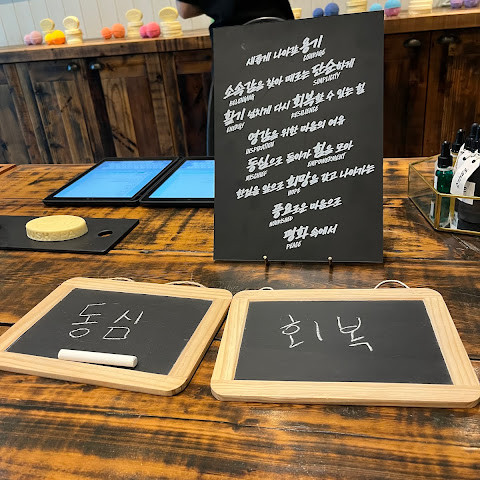 새롭게 나아갈 용기
COURAGE
소속감을 찾아 때로는 단순하게
BELONGING SIMPLICITY
활기 넘치게 다시 회복할 수 있는 힘
ENERGY RESILIENCE
영감을 위한 마음의 여유
INSPIRATION
동심으로 돌아가 힘을 모아
MISCHIEF EMPOWERMENT
한걸음 앞으로 희망을 갖고 나아가는
HOPE
풍요로운 마음으로
NOURISHED
평화 속에서
PEACE
동심
회복